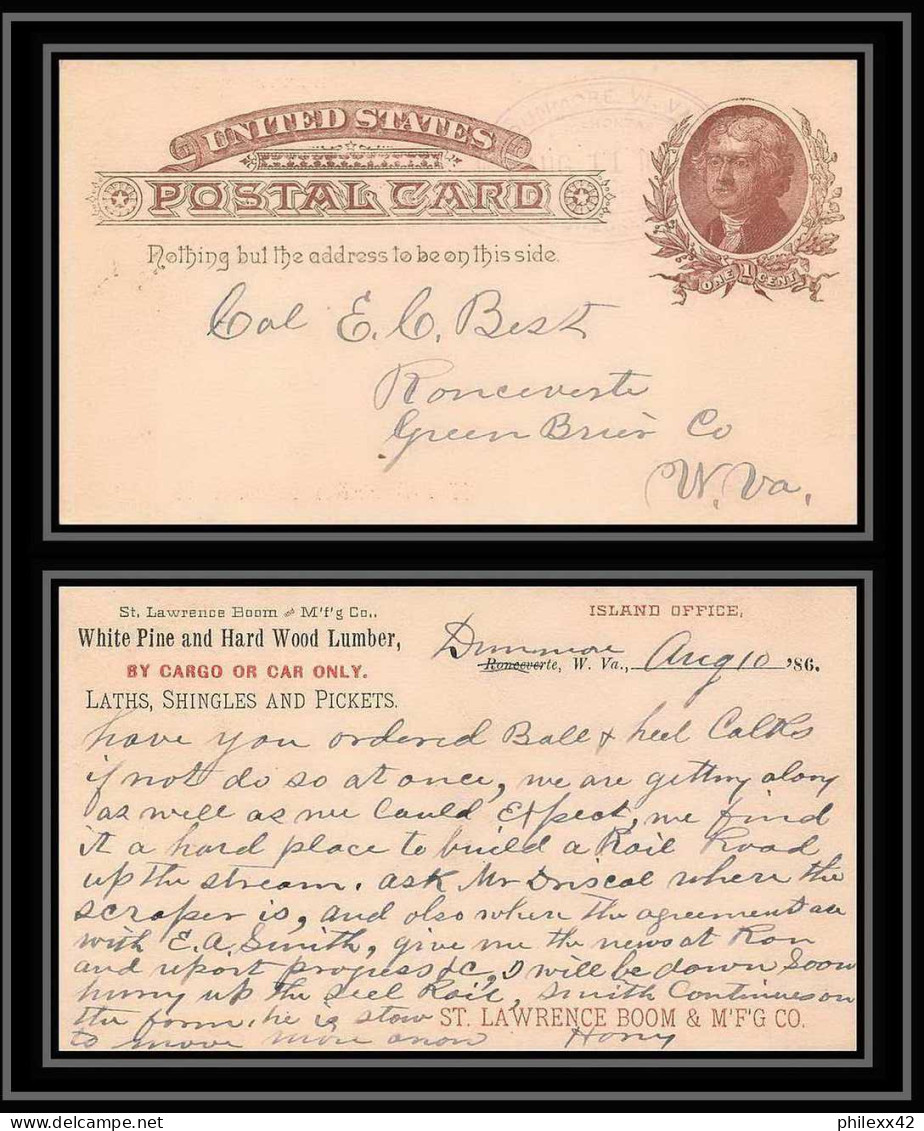 UNITED STATES
POSTAL CARD
Nothing but the address to be on this side.
DUNMORE, W. VA
AUG 11
ONE 1 CENT
Col E. C. Best
Ronceverte
Green Brier Co
W. Va.
St. Lawrence Boom and M'f'g Co.,
White Pine and Hard Wood Lumber,
BY CARGO OR CAR ONLY.
LATHS, SHINGLES AND PICKETS.
ISLAND OFFICE,
Dunmore
Ronceverte, W. Va., Aug 10 '86.
have you ordered Ball & heel Calks
if not do so at once, we are getting along
as well as we could Expect, we find
it a hard place to build a Rail Road
up the stream. ask Mr Driscol where the
scraper is, and also where the agreement are
with E. A. Smith, give me the news at Ron
and report progress &c, I will be down soon
hurry up the Rail, Smith Continues on
the farm, he is slow ST. LAWRENCE BOOM & M'F'G CO.
to move more anon
philexx42